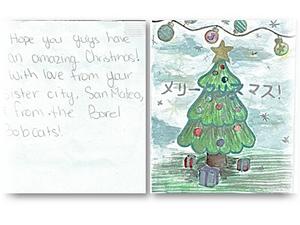 Hope you guys have
an amazing Christmas!
With love from your
sister city, San Mateo,
from the Borel
Bobcats!
メリー スマス!